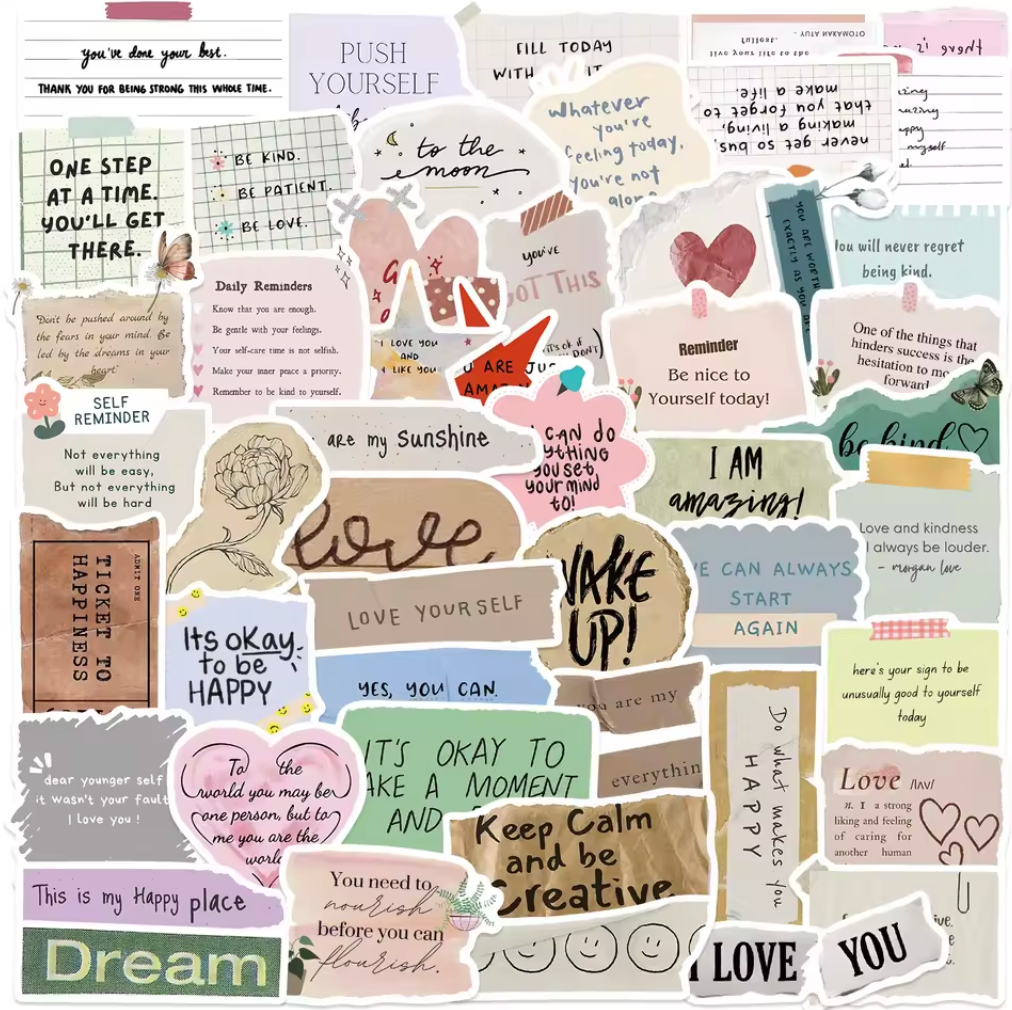 you've done your best.
THANK YOU FOR BEING STRONG THIS WHOLE TIME.
PUSH
YOURSELF
FILL TODAY
WITH
fullest.
live your life to the
- YUTA NAKAMOTO
there is
Whatever
you're
feeling today,
you're not
alone
never get so busy
making a living,
that you forget to
make a life.
myself
ONE STEP
AT A TIME.
YOU'LL GET
THERE.
BE KIND.
BE PATIENT.
BE LOVE.
to the
moon
YOU'VE
GOT THIS
YOU ARE WORTH
EXACTLY AS YOU ARE
You will never regret
being kind.
"Don't be pushed around by
the fears in your mind. Be
led by the dreams in your
heart"
Daily Reminders
Know that you are enough.
Be gentle with your feelings.
Your self-care time is not selfish.
Make your inner peace a priority.
Remember to be kind to yourself.
I LOVE YOU
AND
I LIKE YOU
U ARE JUS
AMAZ
it's ok if
DON'T)
Reminder
Be nice to
Yourself today!
One of the things that
hinders success is the
hesitation to mo
forward
SELF
REMINDER
Not everything
will be easy,
But not everything
will be hard
are my sunshine
I CAN DO
ANYTHING
YOU SET
your MIND
TO!
be kind
I AM
amazing!
Love and kindness
l always be louder.
- morgan love
love
ADMIT ONE
TICKET TO
HAPPINESS
WAKE
UP!
E CAN ALWAYS
START
AGAIN
LOVE YOURSELF
Its okay
to be
HAPPY
YES, YOU CAN.
you are my
everythin
here's your sign to be
unusually good to yourself
today
Do what makes you
HAPPY
dear younger self
it wasn't your fault
I love you !
To the
world you may be
one person, but to
me you are the
world
IT'S OKAY TO
TAKE A MOMENT
AND
Keep Calm
and be
Creative
Love /lʌv/
n. 1 a strong
liking and feeling
of caring for
another human
This is my Happy place
Dream
You need to
nourish
before you can
flourish.
I LOVE
YOU